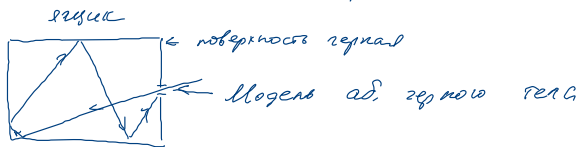 ящик
поверхность черная
Модель аб. черного тела